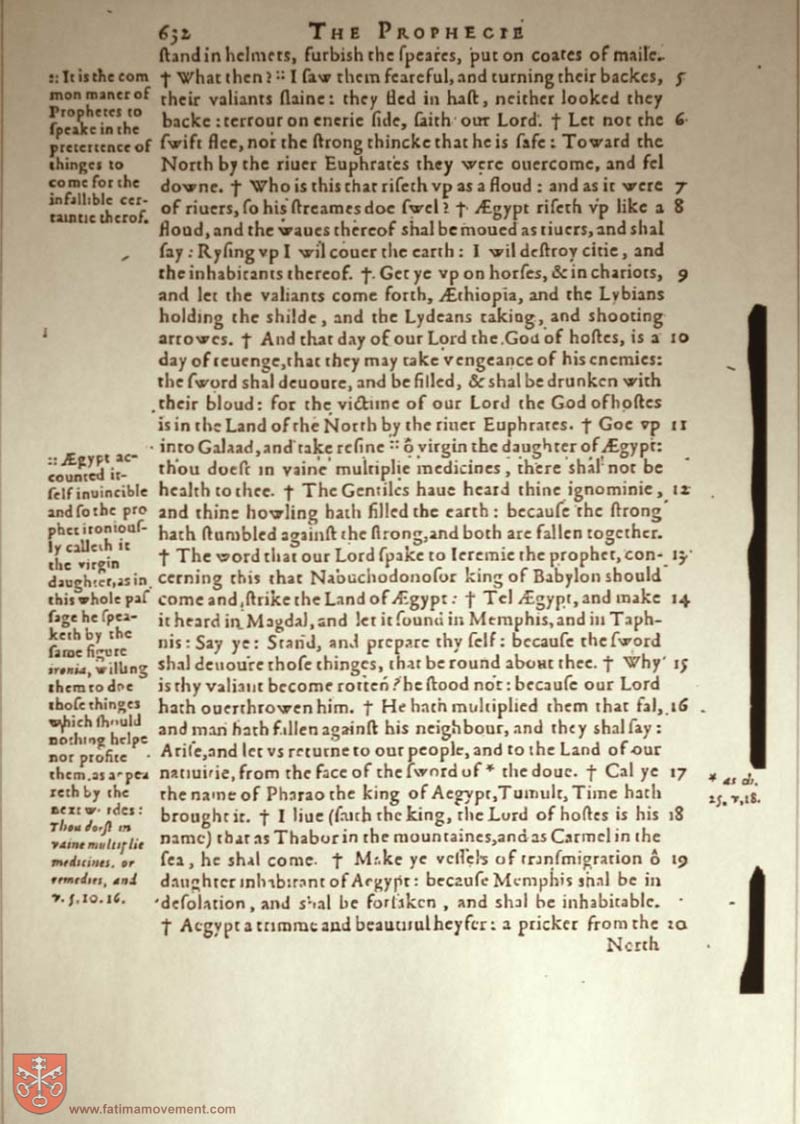 632 THE PROPHECIE
ſtand in helmets, furbish the ſpeares, put on coates of maile.
† What then? :: I ſaw them feareful, and turning their backes, 5
their valiants ſlaine: they fled in haſt, neither looked they
backe: terrour on euerie ſide, ſaith our Lord. † Let not the 6
ſwift flee, nor the ſtrong thincke that he is ſafe: Toward the
North by the riuer Euphrates they were ouercome, and fel
downe. † Who is this that riſeth vp as a floud: and as it were 7
of riuers, ſo his ſtreames doe ſwel? † Ægypt riſeth vp like a 8
floud, and the waues thereof shal be moued as riuers, and shal
ſay: Ryſing vp I wil couer the earth: I wil deſtroy citie, and
the inhabitants thereof. † Get ye vp on horſes, & in chariots, 9
and let the valiants come forth, Æthiopia, and the Lybians
holding the shilde, and the Lydeans taking, and shooting
arrowes. † And that day of our Lord the God of hoſtes, is a 10
day of reuenge, that they may take vengeance of his enemies:
the ſword shal deuoure, and be filled, & shal be drunken with
their bloud: for the victime of our Lord the God of hoſtes
is in the Land of the North by the riuer Euphrates. † Goe vp 11
into Galaad, and take reſine :: ô virgin the daughter of Ægypt:
thou doeſt in vaine multiplie medicines, there shal not be
health to thee. † The Gentiles haue heard thine ignominie, 12
and thine howling hath filled the earth: becauſe the ſtrong
hath ſtumbled againſt the ſtrong, and both are fallen together.
† The word that our Lord ſpake to Ieremie the prophet, con- 13
cerning this that Nabuchodonoſor king of Babylon should
come and ſtrike the Land of Ægypt: † Tel Ægypt, and make 14
it heard in Magdal, and let it ſound in Memphis, and in Taph-
nis: Say ye: Stand, and prepare thy ſelf: becauſe the ſword
shal deuoure thoſe thinges, that be round about thee. † Why 15
is thy valiant become rotten? he ſtood not: becauſe our Lord
hath ouerthrowen him. † He hath multiplied them that fal, 16
and man hath fallen againſt his neighbour, and they shal ſay:
Ariſe, and let vs returne to our people, and to the Land of our
natiuitie, from the face of the ſword of * the doue. † Cal ye 17
the name of Pharao the king of Aegypt, Tumult, Time hath
brought it. † I liue (ſaith the king, the Lord of hoſtes is his 18
name) that as Thabor in the mountaines, and as Carmel in the
ſea, he shal come. † Make ye veſſels of tranſmigration ô 19
daughter inhabitant of Aegypt: becauſe Memphis shal be in
deſolation, and shal be forſaken, and shal be inhabitable.
† Aegypt a trimme and beautiful heyfer: a pricker from the 20
North
:: It is the com
mon maner of
Prophetes to
ſpeake in the
pretertence of
thinges to
come for the
infallible cer-
taintie therof.
:: Ægypt ac-
counted it-
ſelf inuincible
and ſo the pro
phet ironiouſ-
ly calleth it
the virgin
daughter, as in
this whole paſ
ſage he ſpea-
keth by the
ſame figure
ironia, willing
them to doe
thoſe thinges
which should
nothing helpe
nor profite
them, as appea
reth by the
next wordes:
Thou doeſt in
vaine multiplie
medicines, or
remedies, and
v. 5. 10. 16.
* as ch.
25. v. 38.
www.fatimamovement.com